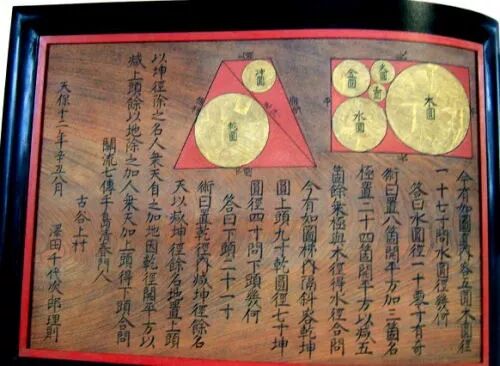 木圓
水圓
金圓
火圓
乾圓
坤圓
今有如圖直内容五圓木圓徑
一十七寸問水圓徑幾何
答曰水圓徑一十零寸有奇
術曰置八箇開平方加三箇名
極置二十四箇開平方以減五
箇餘乗極與木徑得水徑合問
今有如圖梯内隔斜容乾坤
圓上頭九寸乾圓徑七寸坤
圓徑四寸問下頭幾何
答曰下頭二十一寸
術曰置乾徑内減坤徑餘名
天以減坤徑餘名地置上頭
以坤徑除之名人乗天自之加地因乾徑開平方以
減上頭餘以地除之加人乗天加上頭得下頭合問
關流七傳千葛門人
古谷上村
澤田千代次郎理則
天保十二年辛丑八月